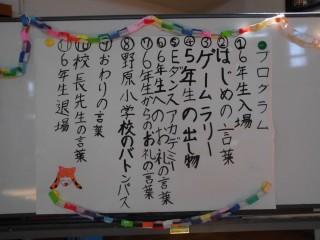 プログラム
①6年生入場
②はじめの言葉
③ゲームラリー
④5年生の出し物
⑤Eダンスアカデミー
⑥6年生へのお礼の言葉
⑦6年生からのお礼の言葉
⑧野原小学校のバトンパス
⑨おわりの言葉
⑩校長先生の言葉
⑪6年生退場